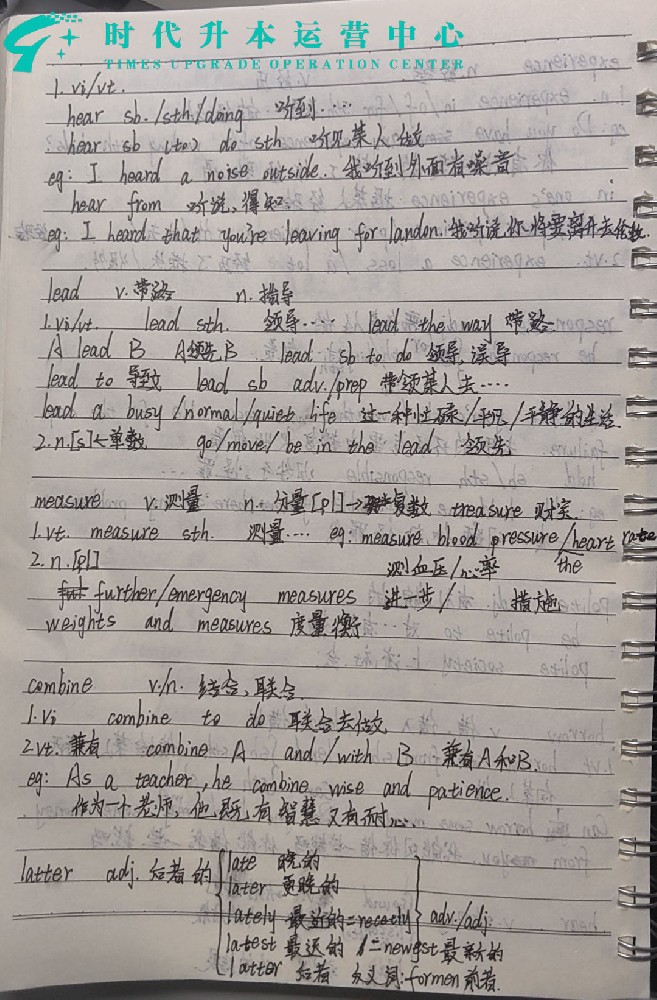 时代升本运营中心
TIMES UPGRADE OPERATION CENTER
1. vi/vt.
hear sb. /sth./doing 听到……
hear sb (to) do sth 听见某人做
eg: I heard a noise outside. 我听到外面有噪音
hear from 听说,得知
eg: I heard that you're leaving for landon. 我听说,你将要离开去伦敦.
lead v. 带路 n. 指导
1. vi/vt. lead sth. 领导… lead the way 带路
A lead B A领先B lead sb to do 领导,误导
lead to 导致 lead sb adv./prep 带领某人去……
lead a busy/normal/quiet life 过一种忙碌/平凡/平静的生活
2. n.[s]←单数 go/move/be in the lead 领先
measure v. 测量 n. 分量[pl]→复数 treasure 财宝
1. vt. measure sth. 测量… eg: measure blood pressure/heart rate
2. n.[pl] 测血压/心率 the
further/emergency measures 进一步/ 措施
weights and measures 度量衡
combine v./n. 结合,联合
1. vi combine to do 联合去做
2. vt. 兼有 combine A and/with B 兼有A和B.
eg: As a teacher, he combine wise and patience.
作为一个老师,他既有智慧又有耐心
latter adj. 后者的
late 晚的
later 更晚的
lately 最近的=recetly adv./adj.
latest 最迟的 /=newest 最新的
latter 后者 反义词:formen 前者.